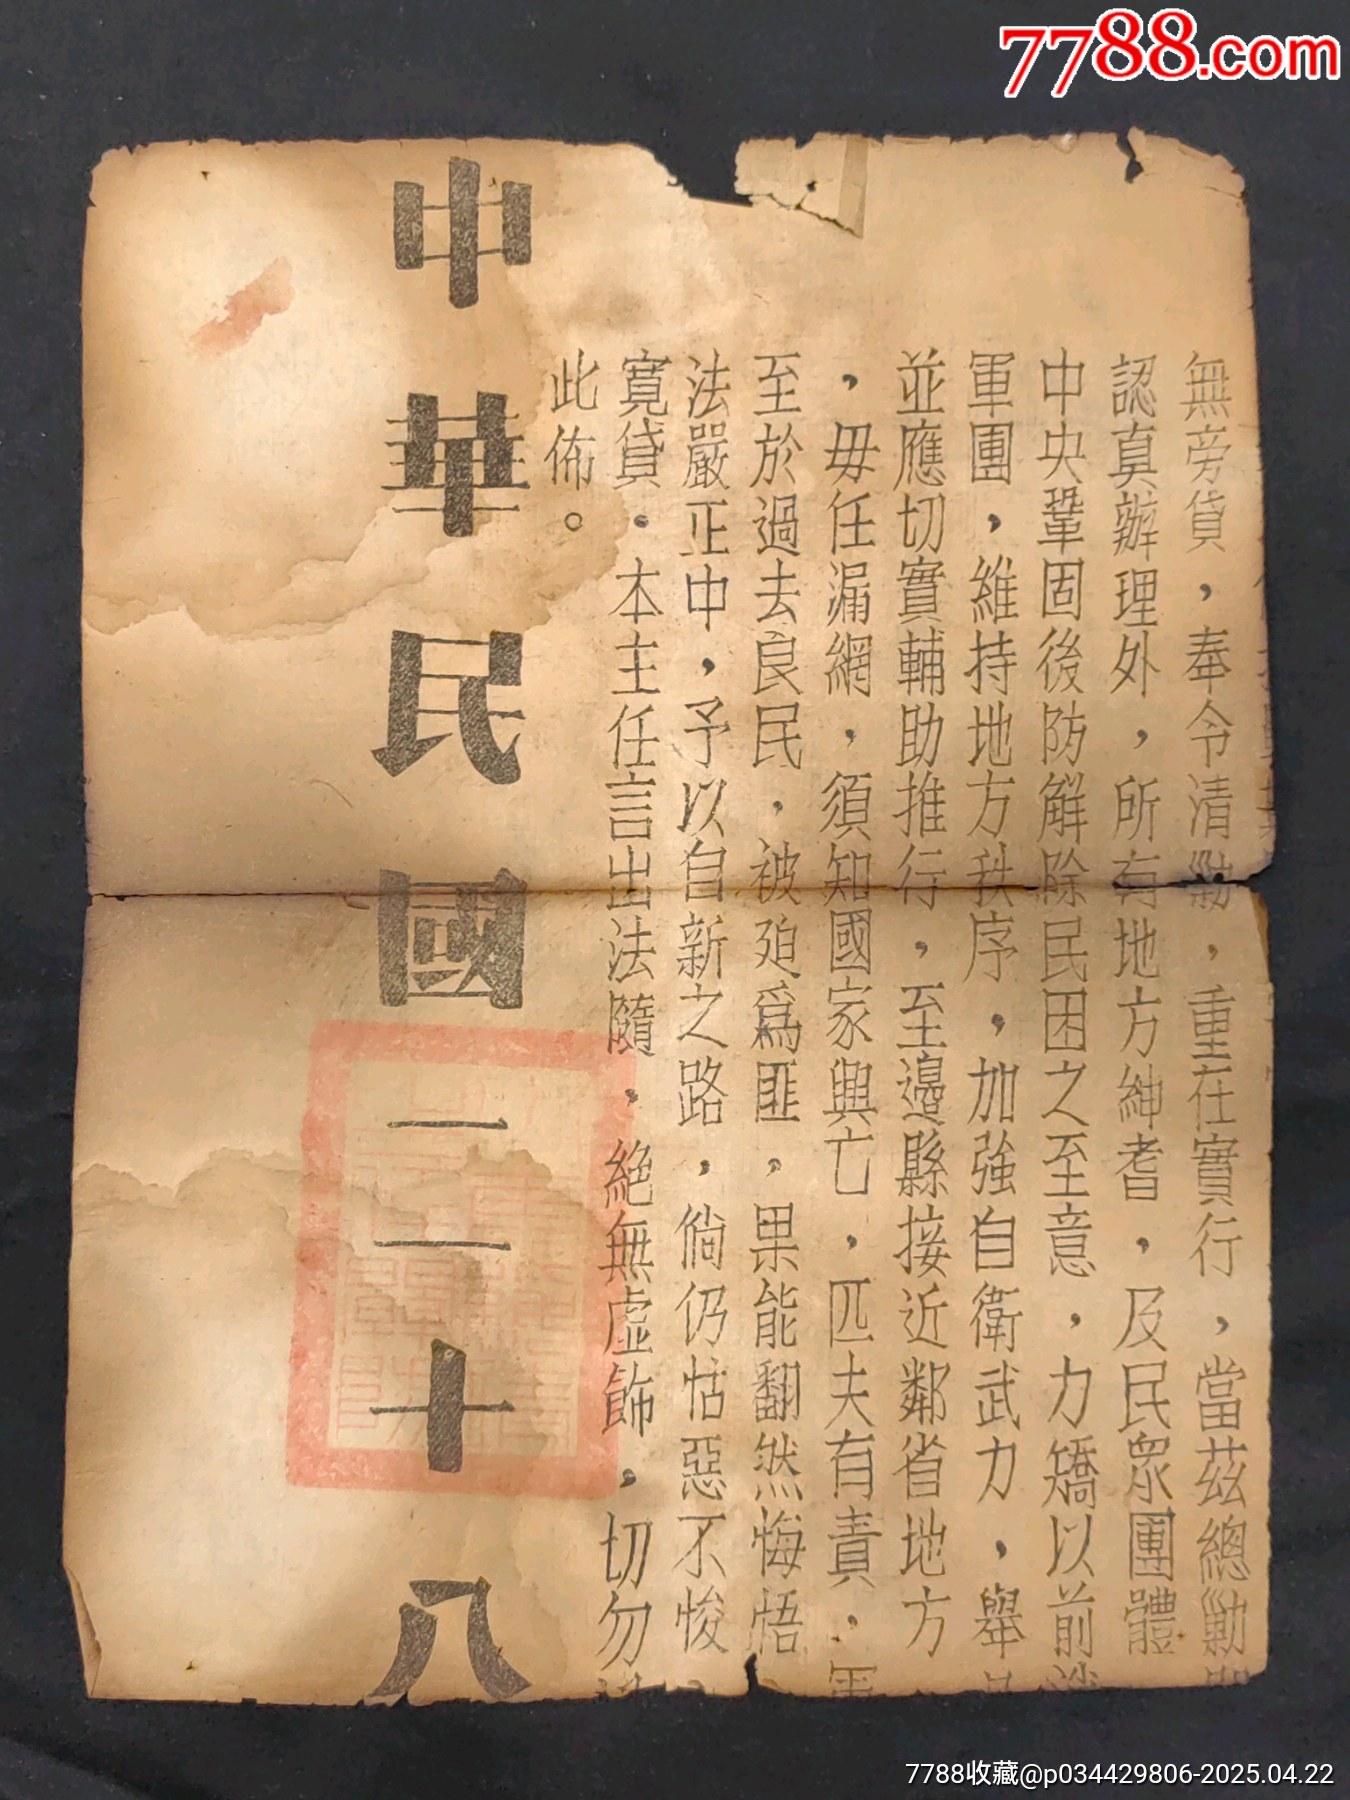 7788.com
無旁貸，奉令清勦，重在實行，當茲總勦
認真辦理外，所有地方紳耆，及民眾團體
中央鞏固後防解除民困之至意，力矯以前
軍團，維持地方秩序，加強自衛武力，舉
並應切實輔助推行，至邊縣接近鄰省地方
，毋任漏網，須知國家興亡，匹夫有責，軍
至於過去良民，被廹為匪，果能翻然悔悟
法嚴正中，予以自新之路，倘仍怙惡不悛
寬貸．本主任言出法隨，絕無虛飾，切勿
此佈。
中華民國二十八
7788收藏@p034429806-2025.04.22